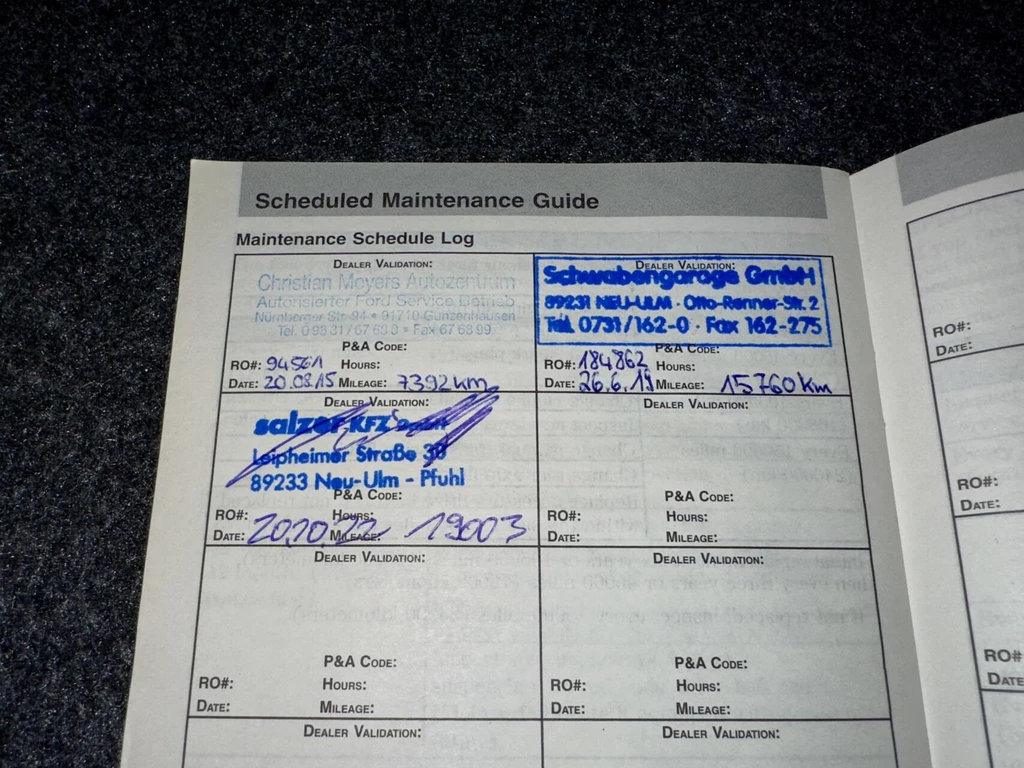 Scheduled Maintenance Guide
Maintenance Schedule Log
DEALER VALIDATION:
Christian Meyers Autozentrum
Autorisierter Ford Service Betrieb
Nürnberger Str. 94 • 91710 Gunzenhausen
Tel. 0 98 31 / 67 66 • Fax 67 68 99
P&A CODE:
RO#: 94561 HOURS:
DATE: 20.08.15 MILEAGE: 7392 km
DEALER VALIDATION:
Schwabengarage GmbH
89231 NEU-ULM · Otto-Renner-Str. 2
Tel. 0731/162-0 · Fax 162-275
P&A CODE:
RO#: 184862 HOURS:
DATE: 26.6.19 MILEAGE: 15760 km
DEALER VALIDATION:
salzer KFZ
Leipheimer Straße
89233 Neu-Ulm - Pfuhl
P&A CODE:
RO#: HOURS:
DATE: 20.10.22 MILEAGE: 19003
DEALER VALIDATION:
P&A CODE:
RO#: HOURS:
DATE: MILEAGE:
DEALER VALIDATION:
P&A CODE:
RO#: HOURS:
DATE: MILEAGE:
DEALER VALIDATION:
P&A CODE:
RO#: HOURS:
DATE: MILEAGE:
DEALER VALIDATION:
DEALER VALIDATION:
RO#:
DATE:
RO#:
DATE:
RO#:
DATE: